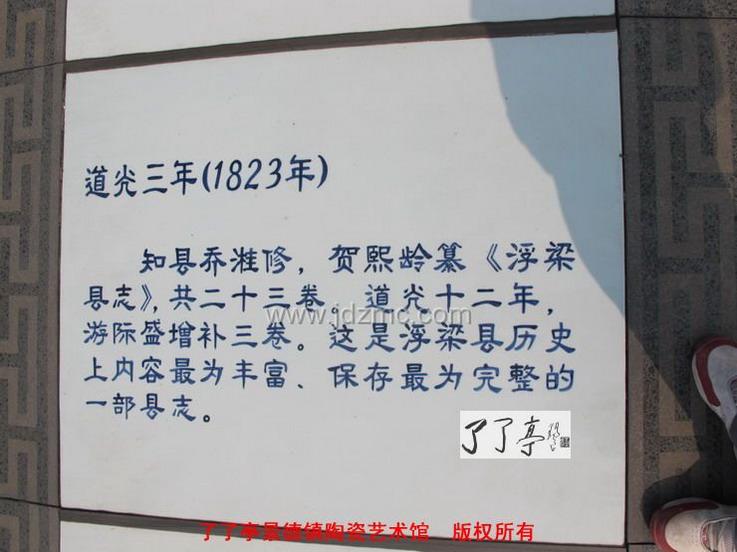 道光三年(1823年)
知县乔溎修，贺熙龄纂《浮梁
县志》，共二十三卷。道光十二年，
www.jdzmc.com
游际盛增补三卷。这是浮梁县历史
上内容最为丰富、保存最为完整的
一部县志。
了了亭
了了亭景德镇陶瓷艺术馆 版权所有